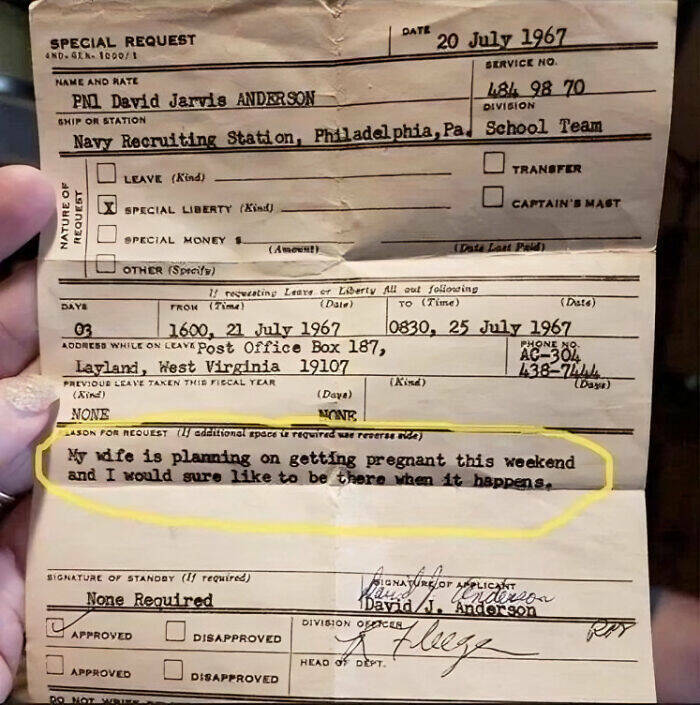 SPECIAL REQUEST
DATE 20 July 1967
SERVICE NO.
NAME AND RATE
484 98 70
PN1 David Jarvis ANDERSON
DIVISION
SHIP OR STATION
Navy Recruiting Station, Philadelphia, Pa. School Team
NATURE OF REQUEST
LEAVE (Kind)
TRANSFER
X SPECIAL LIBERTY (Kind)
CAPTAIN'S MAST
SPECIAL MONEY $ (Amount) (Date Last Paid)
OTHER (Specify)
If requesting Leave or Liberty fill out following
DAYS FROM (Time) (Date) TO (Time) (Date)
03 1600, 21 July 1967 0830, 25 July 1967
ADDRESS WHILE ON LEAVE Post Office Box 187,
PHONE NO.
AC-304
Layland, West Virginia 19107
438-7444
PREVIOUS LEAVE TAKEN THIS FISCAL YEAR
(Kind) (Days) (Kind) (Days)
NONE NONE
REASON FOR REQUEST (If additional space is required use reverse side)
My wife is planning on getting pregnant this weekend
and I would sure like to be there when it happens.
SIGNATURE OF STANDBY (If required)
SIGNATURE OF APPLICANT
David J. Anderson
None Required
David J. Anderson
APPROVED DISAPPROVED
DIVISION OFFICER
APPROVED DISAPPROVED
HEAD OF DEPT.
DO NOT WRITE